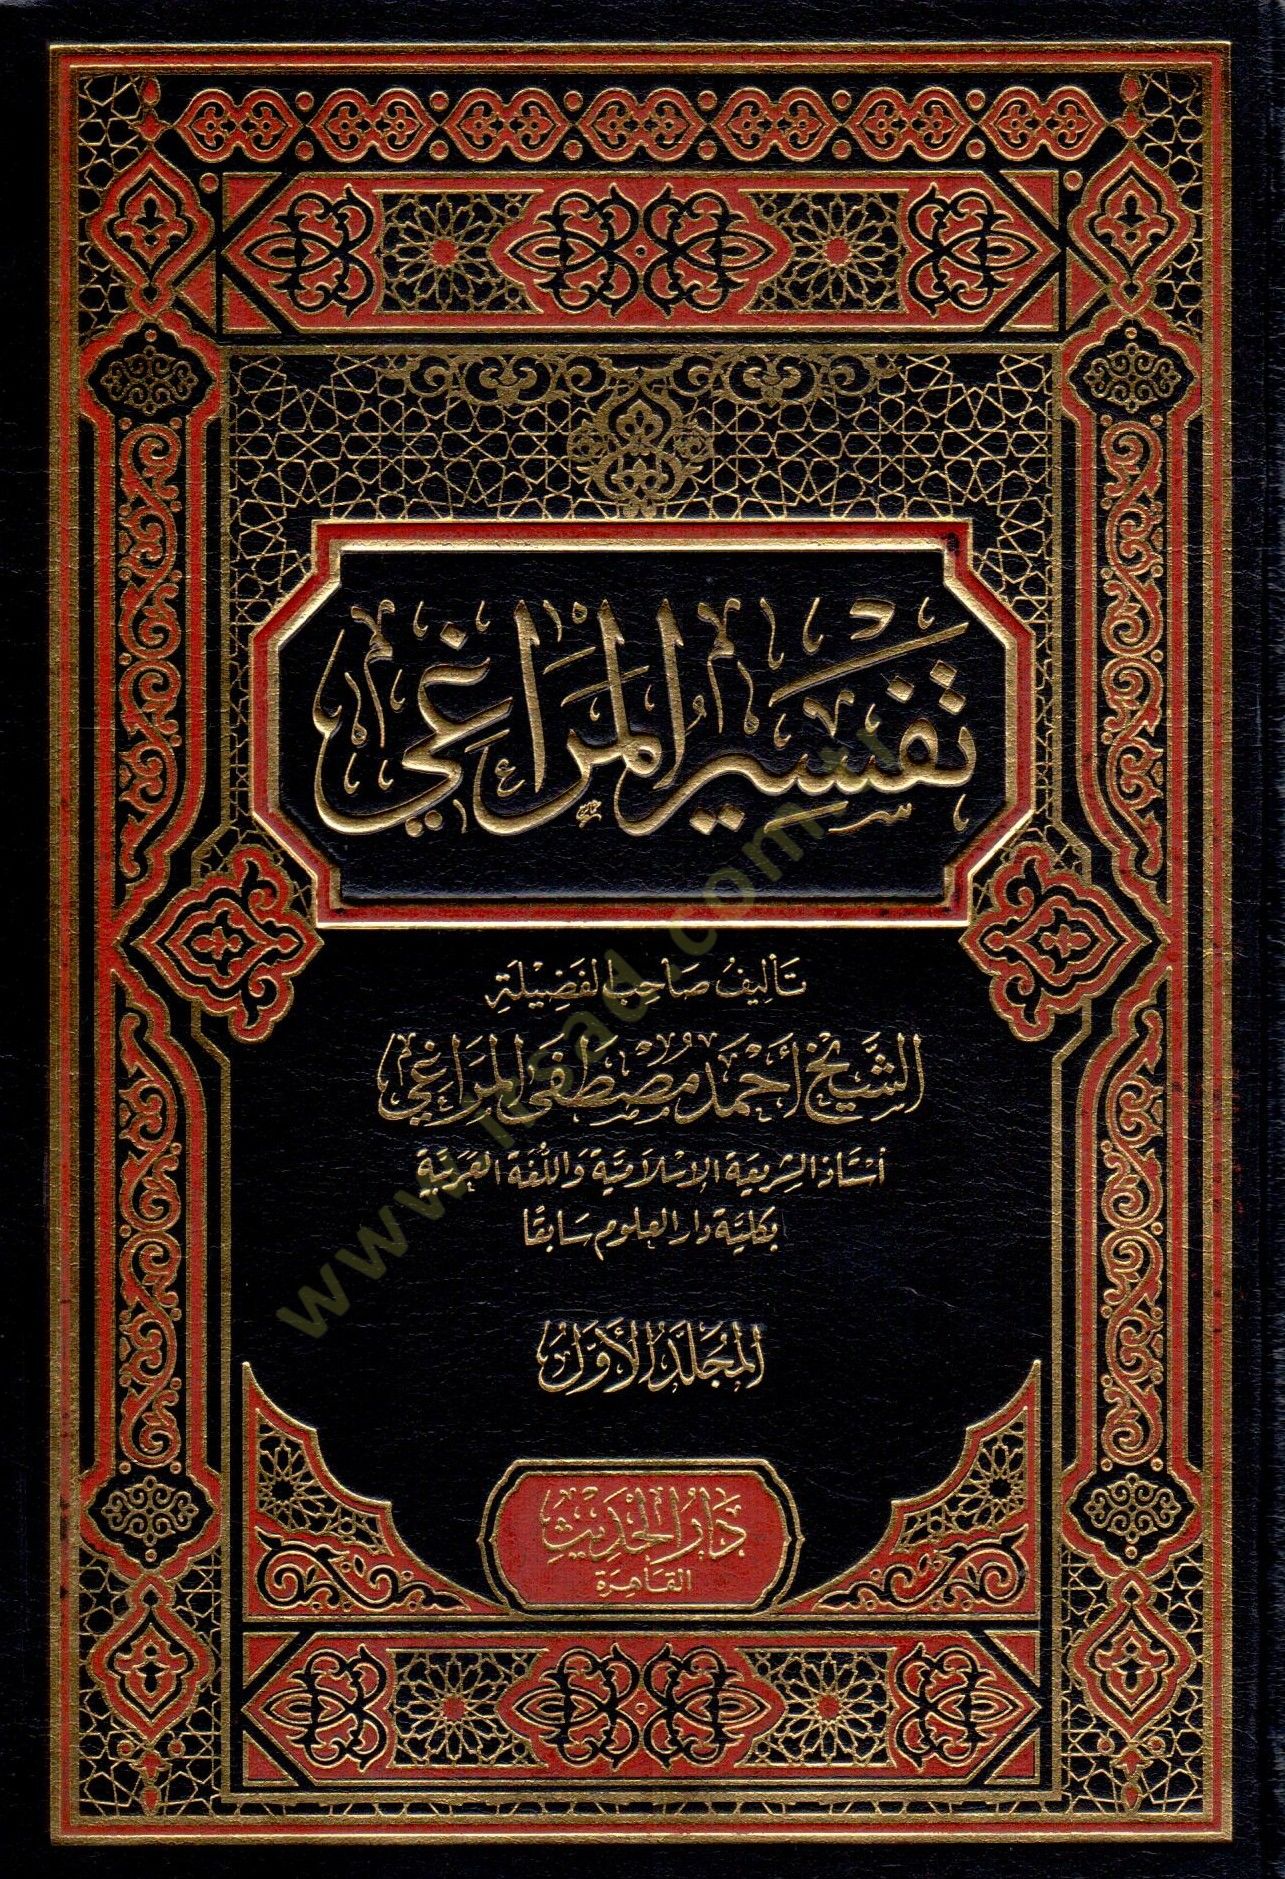 تَفسِير المَرَاغِي
تأليف صاحب الفضيلة
الشيخ أحمد مصطفى المراغي
أستاذ الشريعة الإسلامية واللغة العربية
بكلية دار العلوم سابقًا
المجلد الأول
دار الحديث
القاهرة